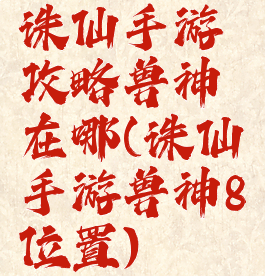 诛仙手游
攻略兽神
在哪(诛仙
手游兽神8
位置)